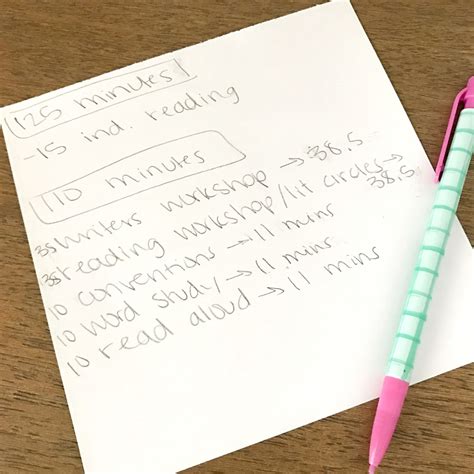 125 minutes
-15 ind. reading
110 minutes
35 writers workshop → 38.5
35 reading workshop/lit circles → 38.5
10 conventions → 11 mins
10 word study → 11 mins
10 read aloud → 11 mins